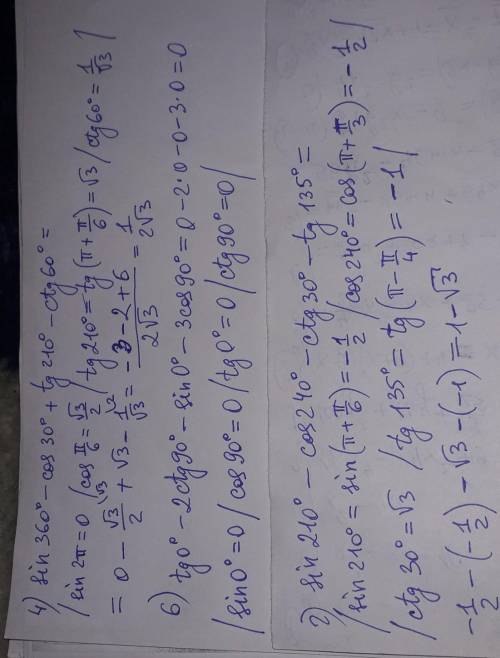 4) sin 360° - cos 30° + tg 210° - ctg 60° =
/ sin 2π = 0 / cos π/6 = √3/2 / tg 210° = tg (π + π/6) = √3 / ctg 60° = 1/√3 /
= 0 - √3/2 + √3 - 1/√3 = (-3 - 2 + 6)/(2√3) = 1/(2√3)
6) tg 0° - 2ctg 90° - sin 0° - 3cos 90° = 0 - 2·0 - 0 - 3·0 = 0
/ sin 0° = 0 / cos 90° = 0 / tg 0° = 0 / ctg 90° = 0 /
2) sin 210° - cos 240° - ctg 30° - tg 135° =
/ sin 210° = sin (π + π/6) = -1/2 / cos 240° = cos (π + π/3) = -1/2 /
/ ctg 30° = √3 / tg 135° = tg (π - π/4) = -1 /
-1/2 - (-1/2) - √3 - (-1) = 1 - √3